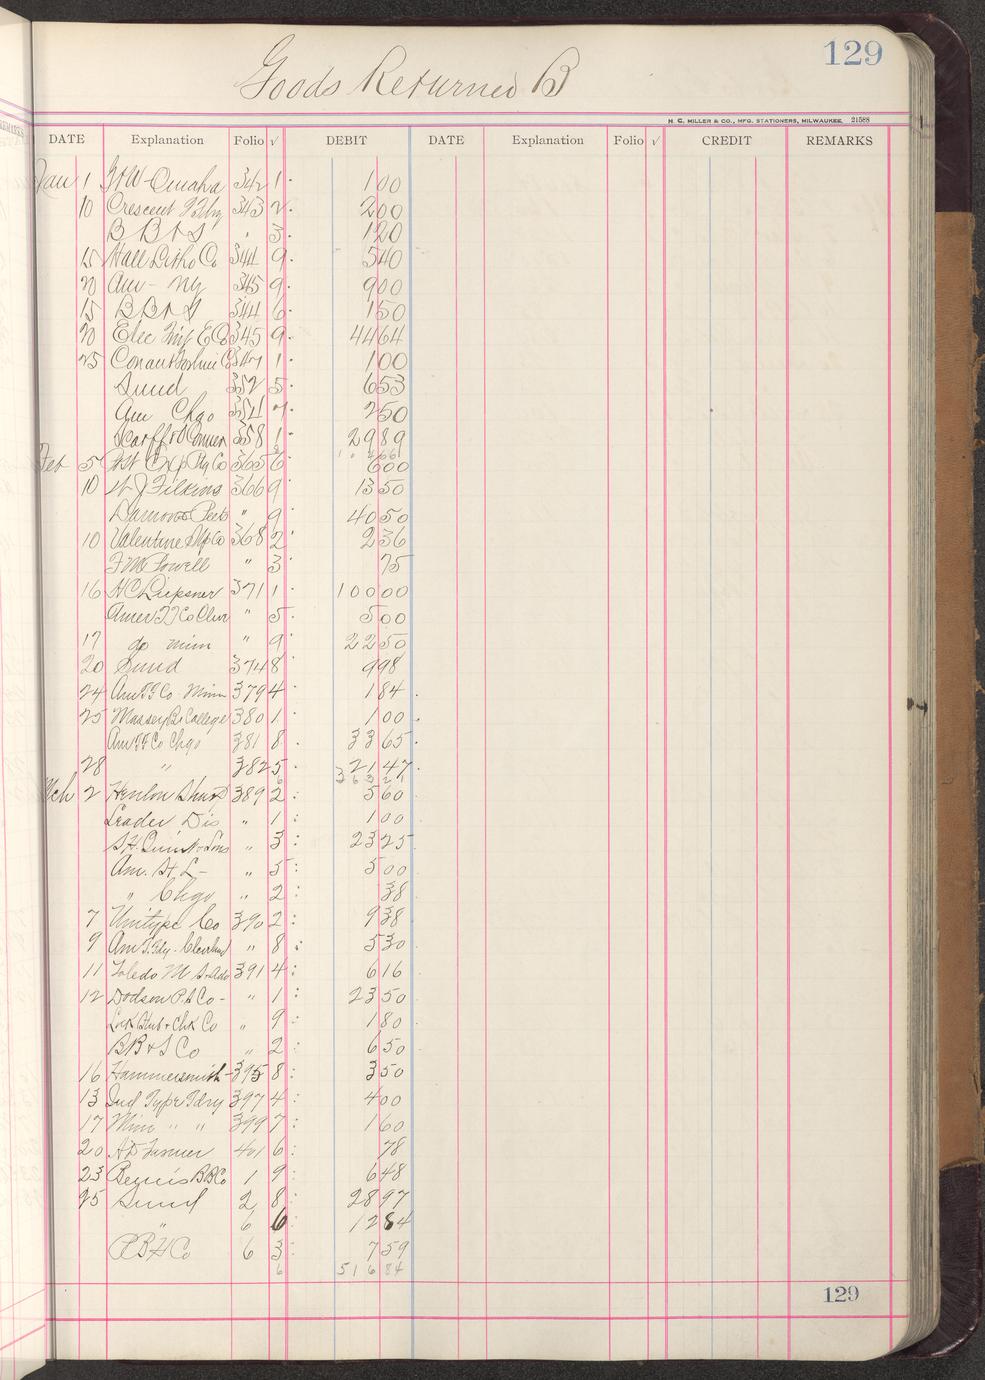 129
Goods Returned B
H. C. MILLER & CO., MFG. STATIONERS, MILWAUKEE. 21588
DATE Explanation Folio √ DEBIT DATE Explanation Folio √ CREDIT REMARKS
Jan 1 Omaha 342 1 1 00
10 Crescent 343 2 2 00
B B & S " 3 1 20
15 Hall Litho Co 344 9 5 40
20 Am - Ny 345 9 9 00
15 B B & S 344 6 1 50
20 Elec 345 9 44 64
25 1 1 00
Sund 352 5 6 53
Am Chgo 2 50
358 1 29 89
Feb 5 Co 365 6 6 00
10 W J Filkins 366 9 13 50
" 9 40 50
10 Valentine Co 368 2 2 36
F M Powell " 3 75
16 H C 371 1 100 00
Amer Co " 5 5 00
17 do minn " 9 22 50
20 Sund 374 8 9 98
24 Am T F Co - Minn 379 4 1 84
25 Massey Bs College 380 1 1 00
Am T F Co Chgo 381 8 33 65
28 " 382 5 21 47
Mch 2 389 2 5 60
Leader Dis " 1 1 00
" 3 23 25
Am. St L - " 5 5 00
" Chgo " 2 38
7 Unitype Co 390 2 9 38
9 Am T. Fdy - Cleveland " 8 5 30
11 Toledo M 391 4 6 16
12 Dodson P. Co - " 1 23 50
Co " 9 1 80
B B & S Co " 2 6 50
16 Hammersmith - 395 8 3 50
13 Ind Type Fdry 397 4 4 00
17 Minn " " 399 7 1 60
20 A D 401 6 78
23 Bemis B B Co 1 9 6 48
25 Sund 2 8 28 97
" 6 6 12 84
Co 6 3 7 59
6 516 84
129